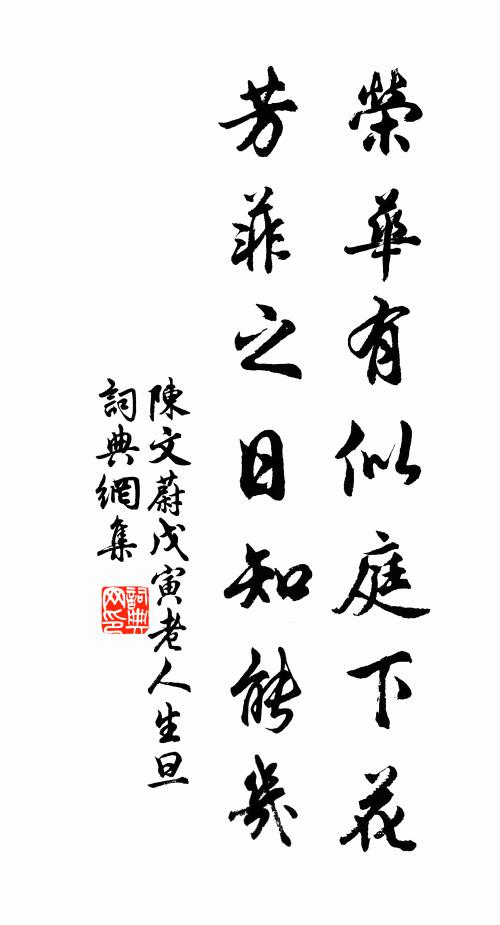 榮華有似庭下花
芳菲之日知能幾
陳文蔚戊寅老人生旦
詞典網集
詞典
网印